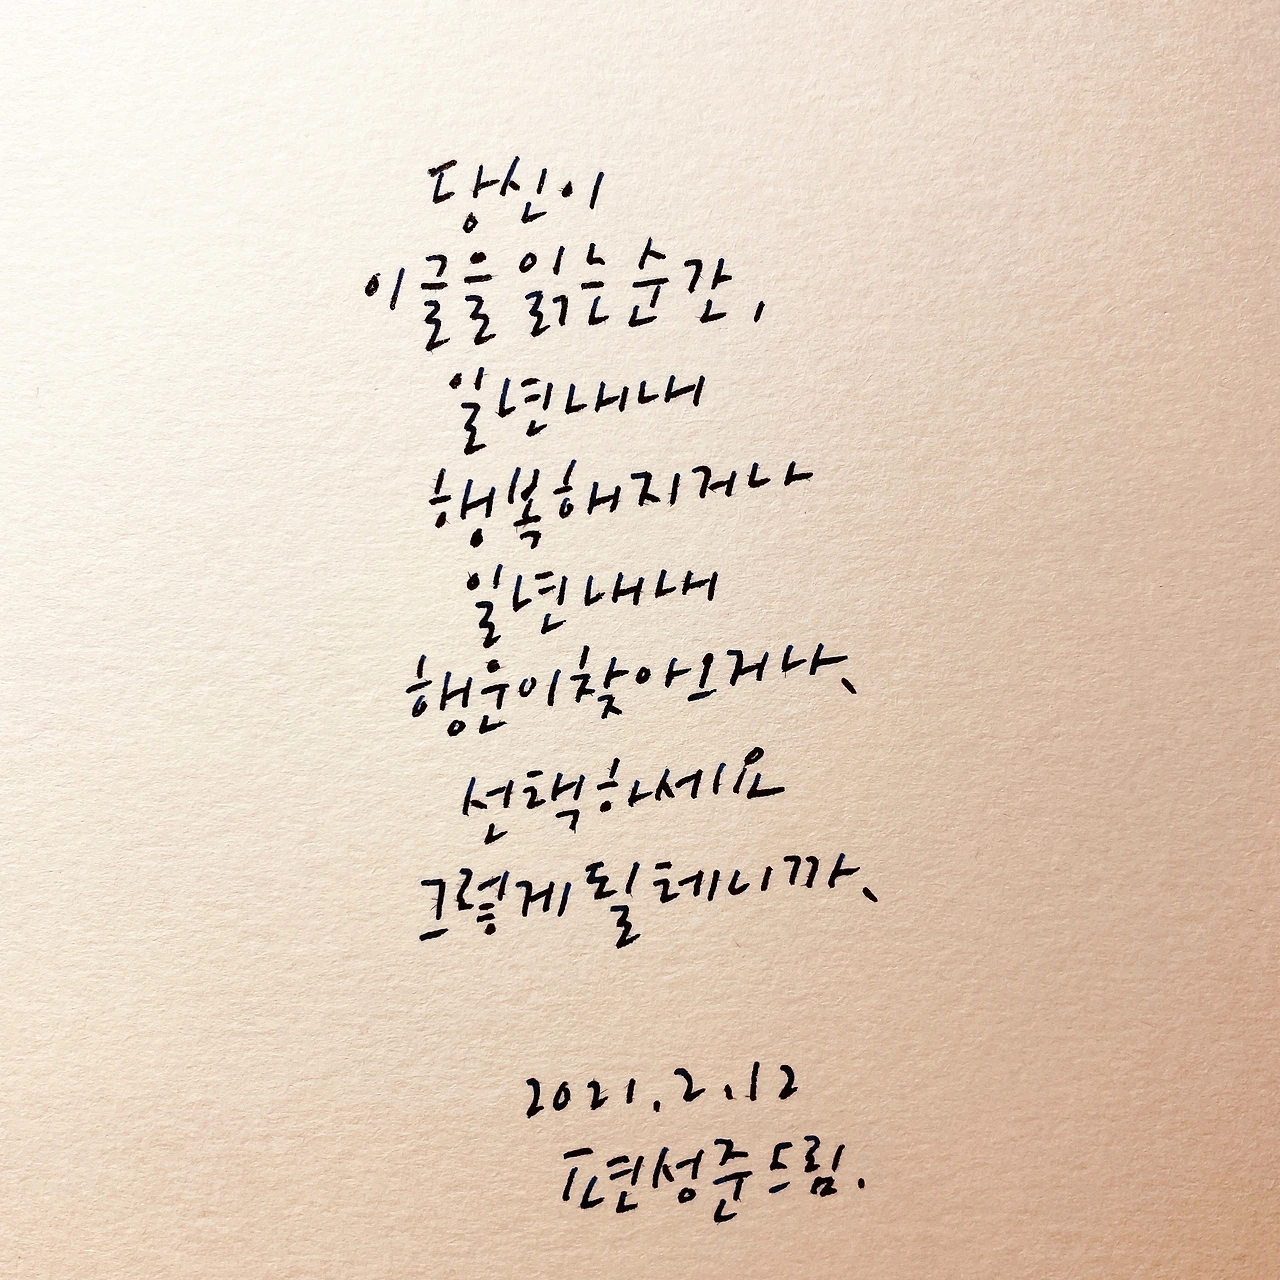 당신이
이 글을 읽는 순간,
일년 내내
행복해지거나
일년 내내
행운이 찾아오거나、
선택하세요
그렇게 될 테니까、
2021.2.12
편성준 드림.